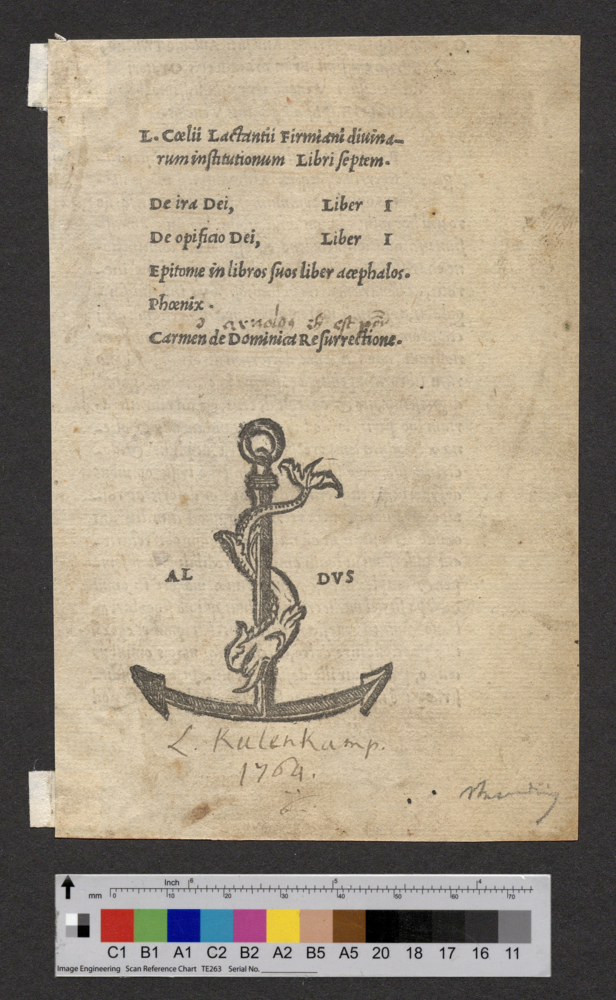 L. Cœlii Lactantii Firmiani diuina-
rum institutionum Libri septem.
De ira Dei, Liber I
De opificio Dei, Liber I
Epitome in libros suos liber acephalos.
Phœnix.
Carmen de Dominica Resurrectione.
AL DVS
L. Kulenkamp.
1764.
Inch 6 5 4
mm 0 10 20 30 40 50 60 70
C1 B1 A1 C2 B2 A2 B5 A5 20 18 17 16 11
Image Engineering Scan Reference Chart TE263 Serial No.